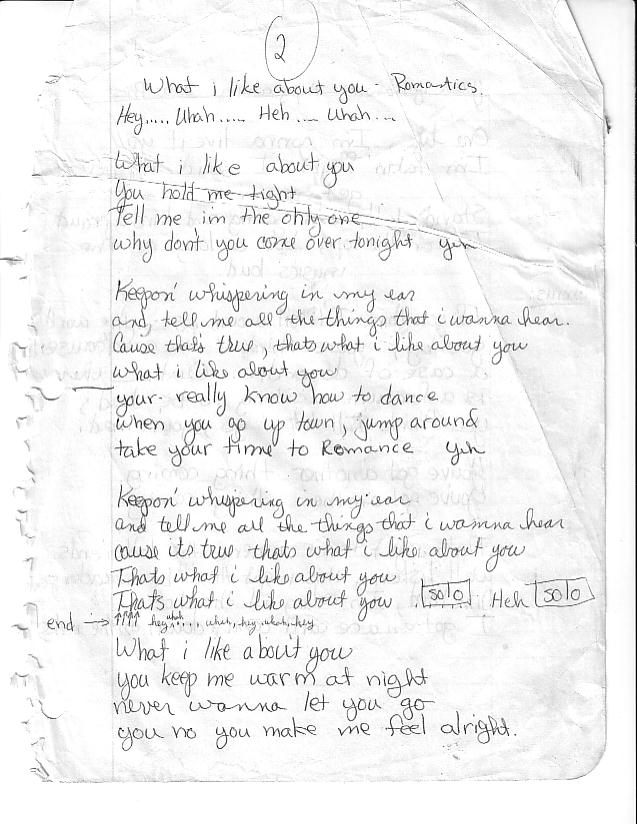 2
What i like about you - Romantics.
Hey..... Uhah..... Heh .... Uhah...
What i like about you
You hold me tight
Tell me im the only one
why don't you come over tonight yeh
Keepon' whispering in my ear
and, tell me all the things that i wanna hear.
Cause that's true, thats what i like about you
what i like about you
your really know how to dance
when you go up town, jump around
take your time to Romance yeh
Keepon' whispering in my ear
and tell me all the things that i wamna hear
cause its true thats what i like about you
Thats what i like about you
That's what i like about you solo Heh solo
end → hey uhah..., uheh, hey, uhah, hey
What i like about you
you keep me warm at night
never wanna let you go
you no you make me feel alright.